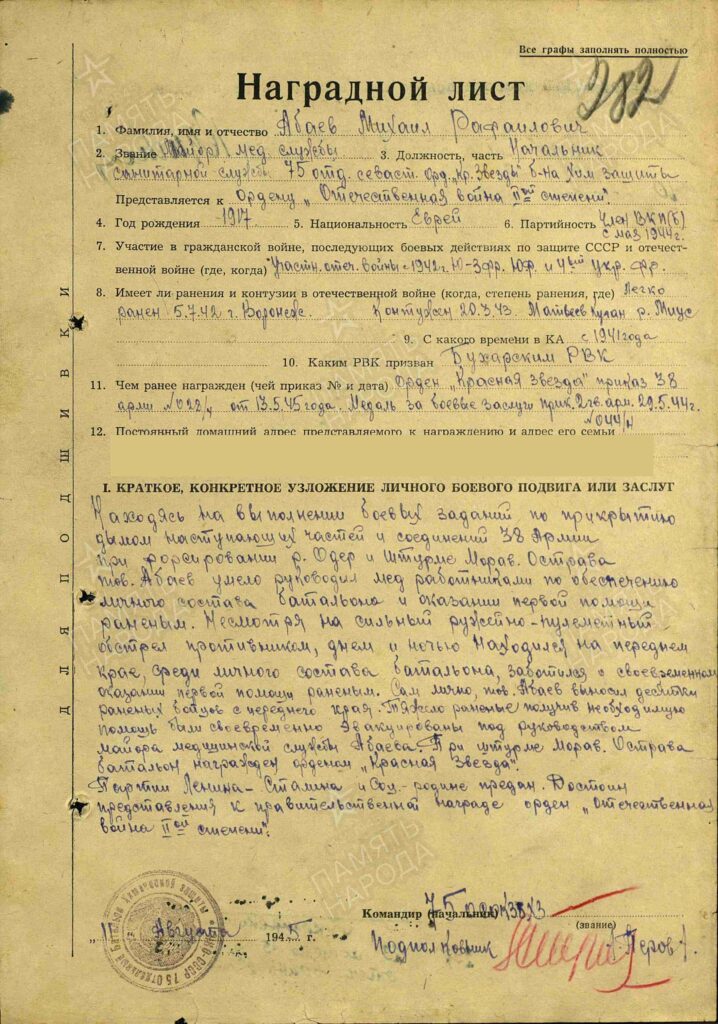 Все графы заполнять полностью
282
Наградной лист
1. Фамилия, имя и отчество Абаев Михаил Рафаилович
2. Звание Майор мед. службы 3. Должность, часть Начальник
санитарной службы 75 отд. севаст. орд. „Кр. Звезды" б-на хим защиты
Представляется к Ордену „Отечественная война IIой степени".
4. Год рождения 1917 5. Национальность Еврей 6. Партийность Член ВКП(б)
с мая 1944г.
7. Участие в гражданской войне, последующих боевых действиях по защите СССР и отечест-
венной войне (где, когда) Участн. отеч. войны с 1942г. Ю-З фр. Ю.Ф. и 4ый укр. фр.
8. Имеет ли ранения и контузии в отечественной войне (когда, степень ранения, где) Легко
ранен 5.7.42 г. Воронеж. Контужен 20.3.43. Матвеев Курган р. Миус
9. С какого времени в КА с 1941 года
10. Каким РВК призван Бухарским РВК
11. Чем ранее награжден (чей приказ № и дата) Орден „Красная Звезда" приказ 38
арми №028/н от 13.5.45 года. Медаль за боевые заслуги прик. 2 гв. арм. 29.5.44г.
№044/н
12. Постоянный домашний адрес представляемого к награждению и адрес его семьи
I. КРАТКОЕ, КОНКРЕТНОЕ УЗЛОЖЕНИЕ ЛИЧНОГО БОЕВОГО ПОДВИГА ИЛИ ЗАСЛУГ
Находясь на выполнении боевых заданий по прикрытию
дымом наступающих частей и соединений 38 Армии
при форсировании р. Одер и штурме Морав. Острава
тов. Абаев умело руководил мед работниками по обеспечению
личного состава батальона и оказании первой помощи
раненым. Несмотря на сильный ружейно-пулеметный
обстрел противником, днем и ночью находился на переднем
крае, среди личного состава батальона, заботился о своевременном
оказании первой помощи раненым. Сам лично, тов. Абаев выносил десятки
раненых бойцов с переднего края. Тяжело раненые получив необходимую
помощь были своевременно эвакуированы под руководством
майора медицинской службы Абаева. При штурме Морав. Острава
батальон награжден орденом „Красная Звезда".
Партии Ленина-Сталина и Соц.-родине предан. Достоин
представления к правительственной награде орден „Отечественная
война IIой степени".
ДЛЯ ПОДШИВКИ
Командир (начальник) 75
(звание)
„11" Августа 1945 г.
Подполковник /Перов/.
ПАМЯТЬ НАРОДА